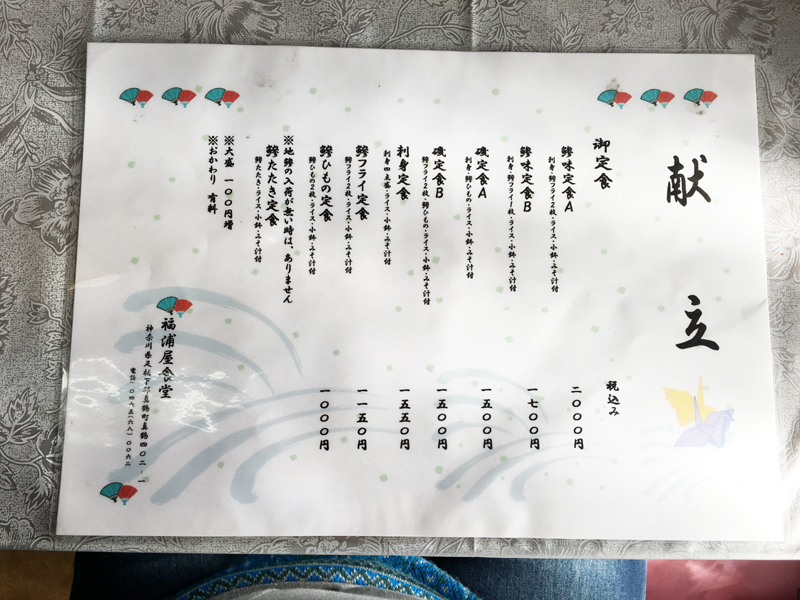 献立
御定食
税込み
鯵味定食A
刺身・鯵フライ2枚・ライス・小鉢・みそ汁付
二〇〇〇円
鯵味定食B
刺身・鯵フライ1枚・ライス・小鉢・みそ汁付
一七〇〇円
磯定食A
刺身・鯵ひもの・ライス・小鉢・みそ汁付
一五〇〇円
磯定食B
鯵フライ2枚・鯵ひもの・ライス・小鉢・みそ汁付
一五〇〇円
刺身定食
刺身四点盛・ライス・小鉢・みそ汁付
一五五〇円
鯵フライ定食
鯵フライ2枚・ライス・小鉢・みそ汁付
一一五〇円
鯵ひもの定食
鯵ひもの2枚・ライス・小鉢・みそ汁付
一〇〇〇円
※地鯵の入荷が無い時は、ありません
鯵たたき定食
鯵たたき・ライス・小鉢・みそ汁付
※大盛 一〇〇円増
※おかわり 有料
福浦屋食堂
神奈川県足柄下郡真鶴町真鶴四〇二-一
電話 〇四六五(六八)〇〇六二